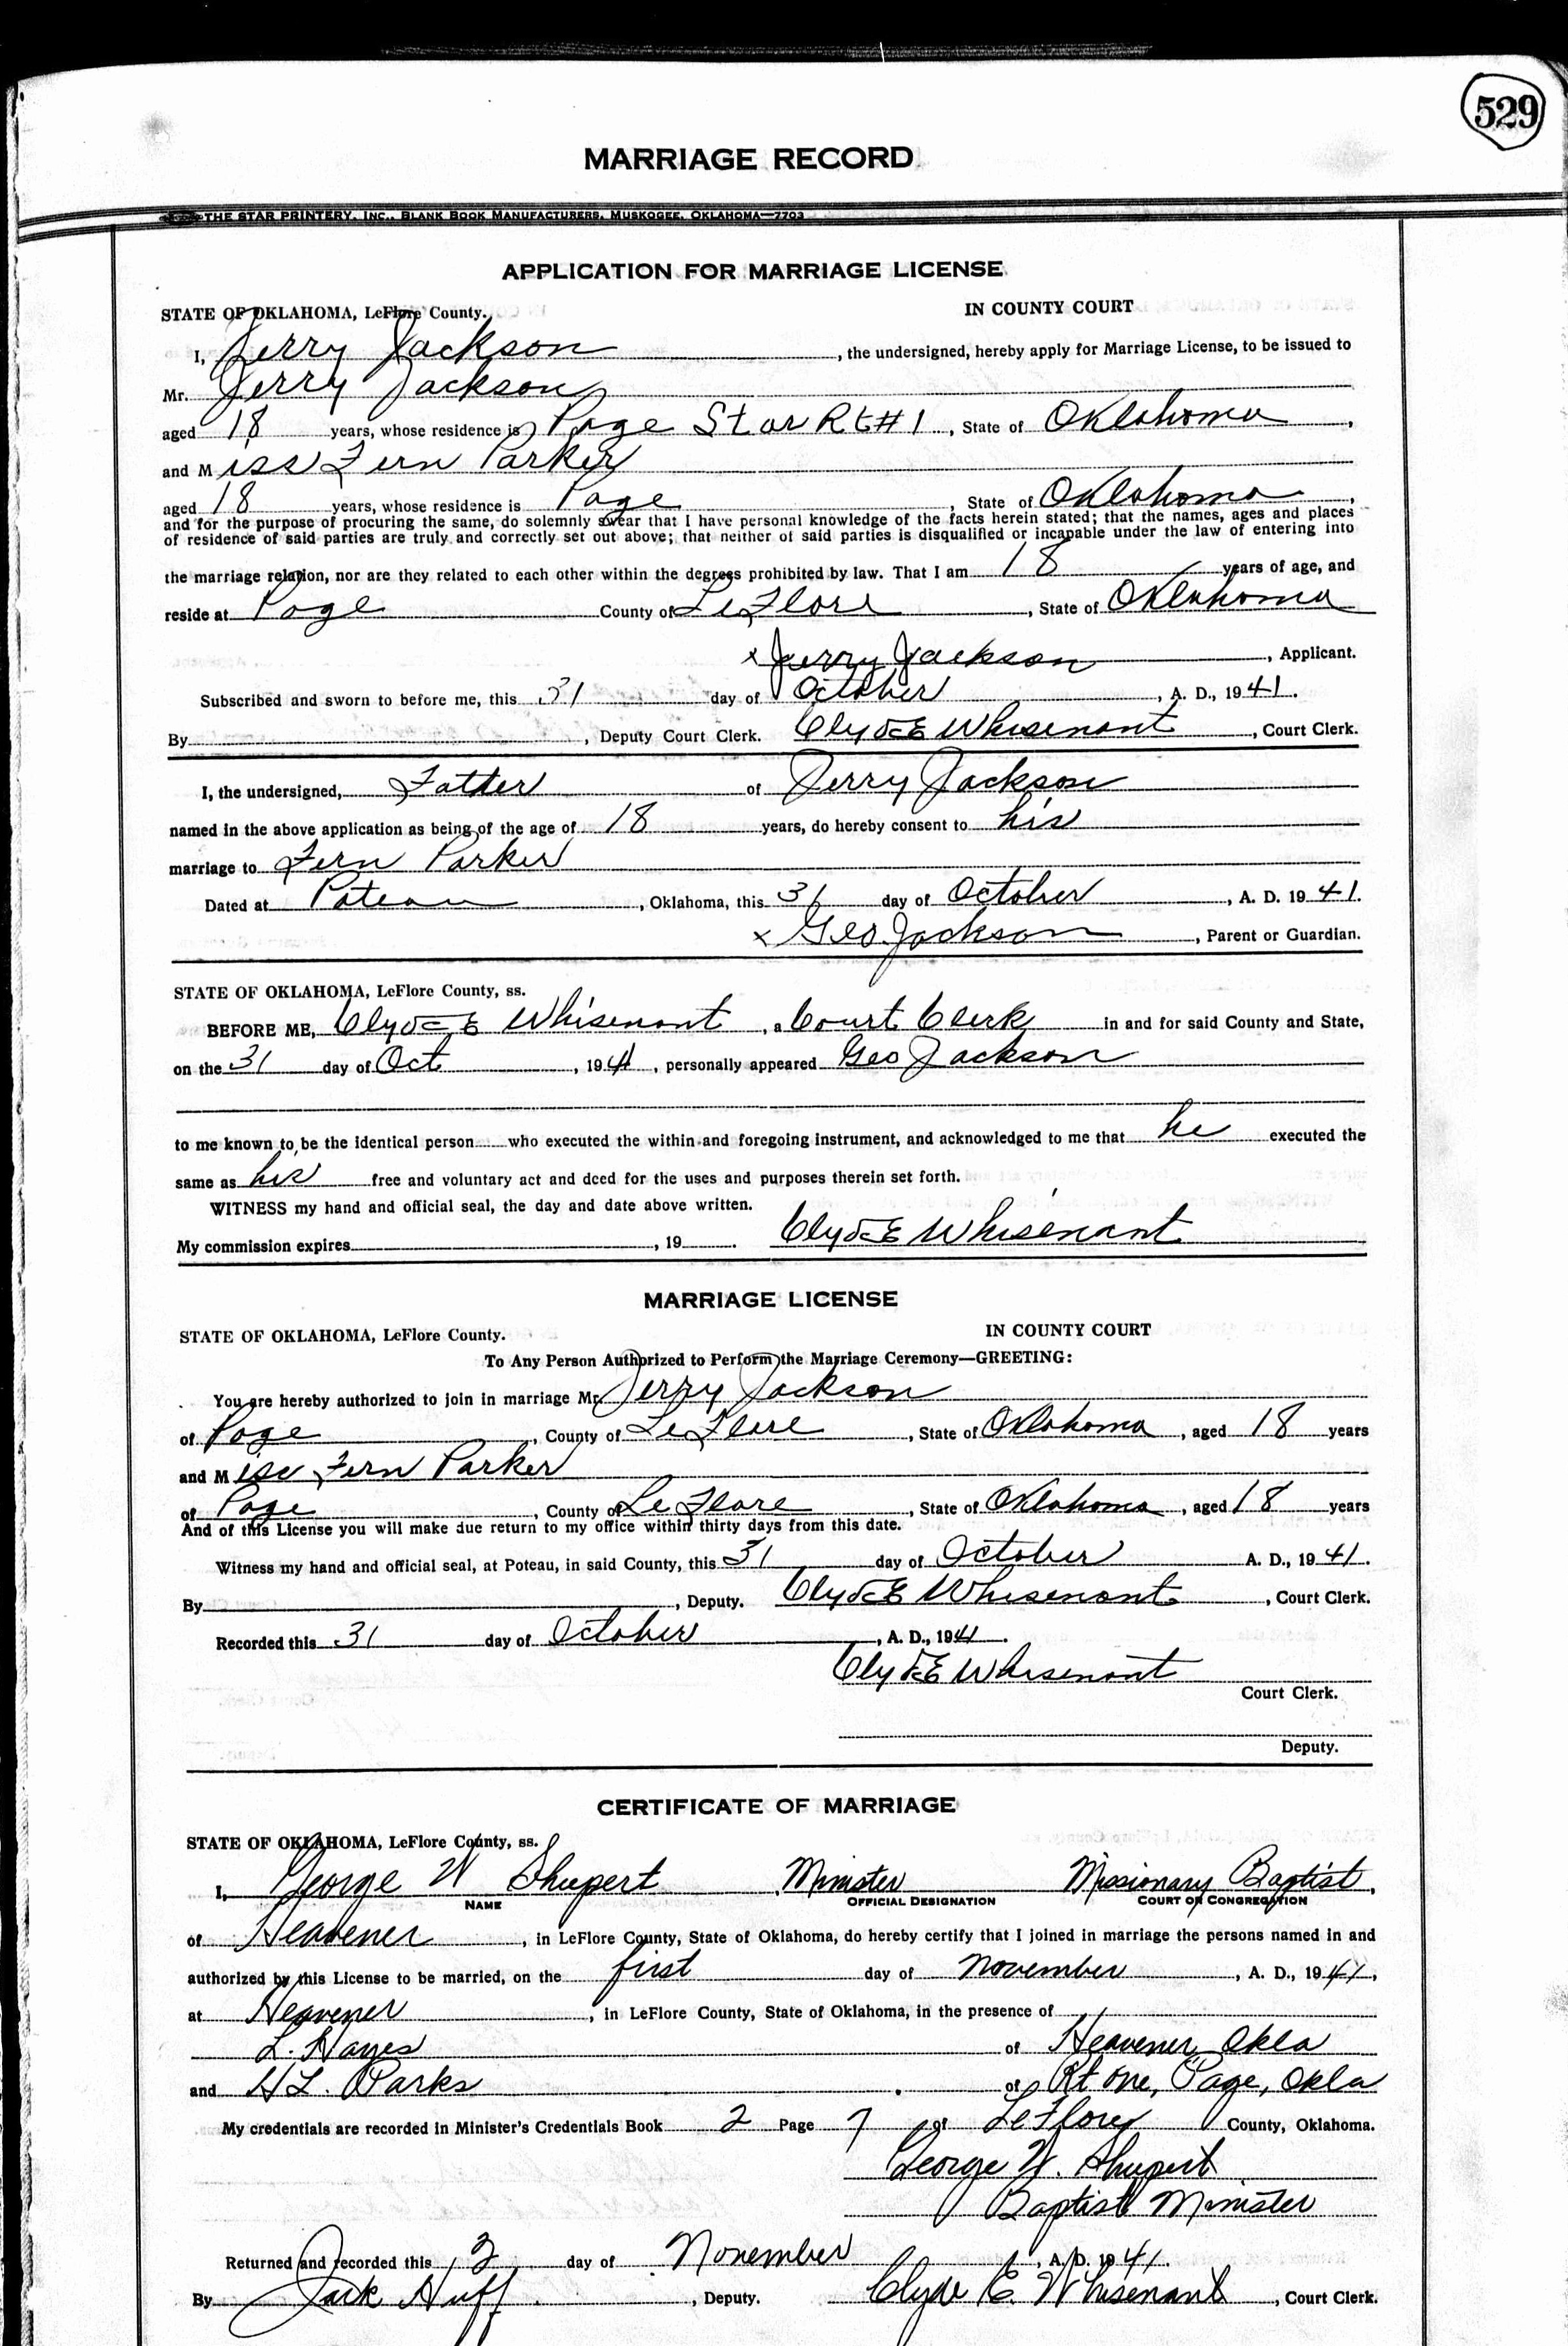 529
MARRIAGE RECORD
THE STAR PRINTERY, INC., BLANK BOOK MANUFACTURERS, MUSKOGEE, OKLAHOMA—7703
APPLICATION FOR MARRIAGE LICENSE
STATE OF OKLAHOMA, LeFlore County. IN COUNTY COURT
I, Jerry Jackson, the undersigned, hereby apply for Marriage License, to be issued to
Mr. Jerry Jackson
aged 18 years, whose residence is Page Star Rt #1, State of Oklahoma,
and Miss Fern Parker
aged 18 years, whose residence is Page, State of Oklahoma,
and for the purpose of procuring the same, do solemnly swear that I have personal knowledge of the facts herein stated; that the names, ages and places
of residence of said parties are truly and correctly set out above; that neither of said parties is disqualified or incapable under the law of entering into
the marriage relation, nor are they related to each other within the degrees prohibited by law. That I am 18 years of age, and
reside at Page County of LeFlore, State of Oklahoma
x Jerry Jackson, Applicant.
Subscribed and sworn to before me, this 31 day of October, A. D., 1941.
By, Deputy Court Clerk. Clyde E Whisenant, Court Clerk.
I, the undersigned, Father of Jerry Jackson
named in the above application as being of the age of 18 years, do hereby consent to his
marriage to Fern Parker
Dated at Poteau, Oklahoma, this 31 day of October, A. D. 1941.
x Geo Jackson, Parent or Guardian.
STATE OF OKLAHOMA, LeFlore County, ss.
BEFORE ME, Clyde E Whisenant, a Court Clerk in and for said County and State,
on the 31 day of Oct, 1941, personally appeared Geo Jackson
to me known to be the identical person who executed the within and foregoing instrument, and acknowledged to me that he executed the
same as his free and voluntary act and deed for the uses and purposes therein set forth.
WITNESS my hand and official seal, the day and date above written.
My commission expires, 19. Clyde E Whisenant
MARRIAGE LICENSE
STATE OF OKLAHOMA, LeFlore County. IN COUNTY COURT
To Any Person Authorized to Perform the Marriage Ceremony—GREETING:
You are hereby authorized to join in marriage Mr. Jerry Jackson
of Page, County of LeFlore, State of Oklahoma, aged 18 years
and Miss Fern Parker
of Page, County of LeFlore, State of Oklahoma, aged 18 years
And of this License you will make due return to my office within thirty days from this date.
Witness my hand and official seal, at Poteau, in said County, this 31 day of October A. D., 1941.
By, Deputy. Clyde E Whisenant, Court Clerk.
Recorded this 31 day of October, A. D., 1941.
Clyde E Whisenant
Court Clerk.
Deputy.
CERTIFICATE OF MARRIAGE
STATE OF OKLAHOMA, LeFlore County, ss.
I, George W Shupert Minister Missionary Baptist,
NAME OFFICIAL DESIGNATION COURT OR CONGREGATION
of Heavener, in LeFlore County, State of Oklahoma, do hereby certify that I joined in marriage the persons named in and
authorized by this License to be married, on the first day of November, A. D., 1941,
at Heavener, in LeFlore County, State of Oklahoma, in the presence of
L. Hayes of Heavener, Okla
and H L. Parks of Rt one, Page, Okla
My credentials are recorded in Minister's Credentials Book 2 Page 7 of LeFlore County, Oklahoma.
George W. Shupert
Baptist Minister
Returned and recorded this 3 day of November, A. D. 1941.
By Jack Huff, Deputy. Clyde E. Whisenant, Court Clerk.